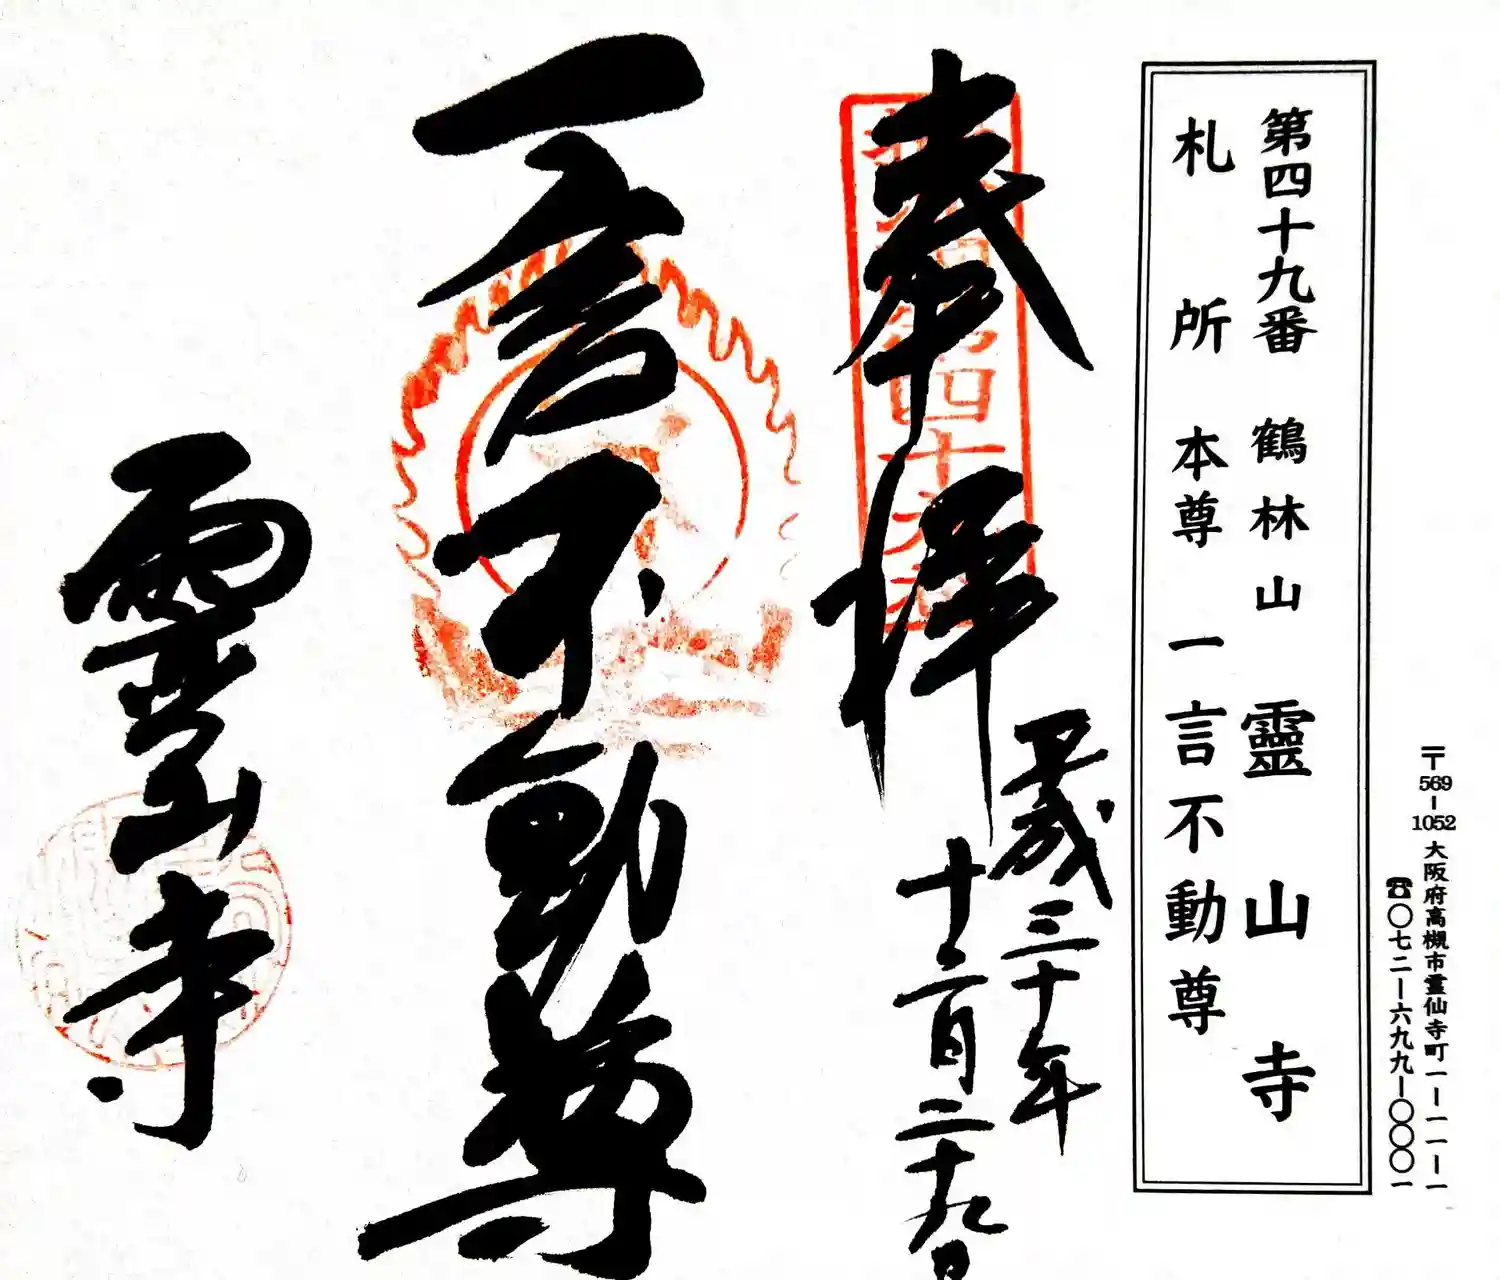 〒569-1052 大阪府高槻市霊仙寺町一ー一一ー一
☎〇七二ー六九九ー〇〇〇一
第四十九番 鶴林山 靈山寺
札所 本尊 一言不動尊
奉拝
平成三十年
十二月二十九日
第四十九番
一言不動尊
靈山寺